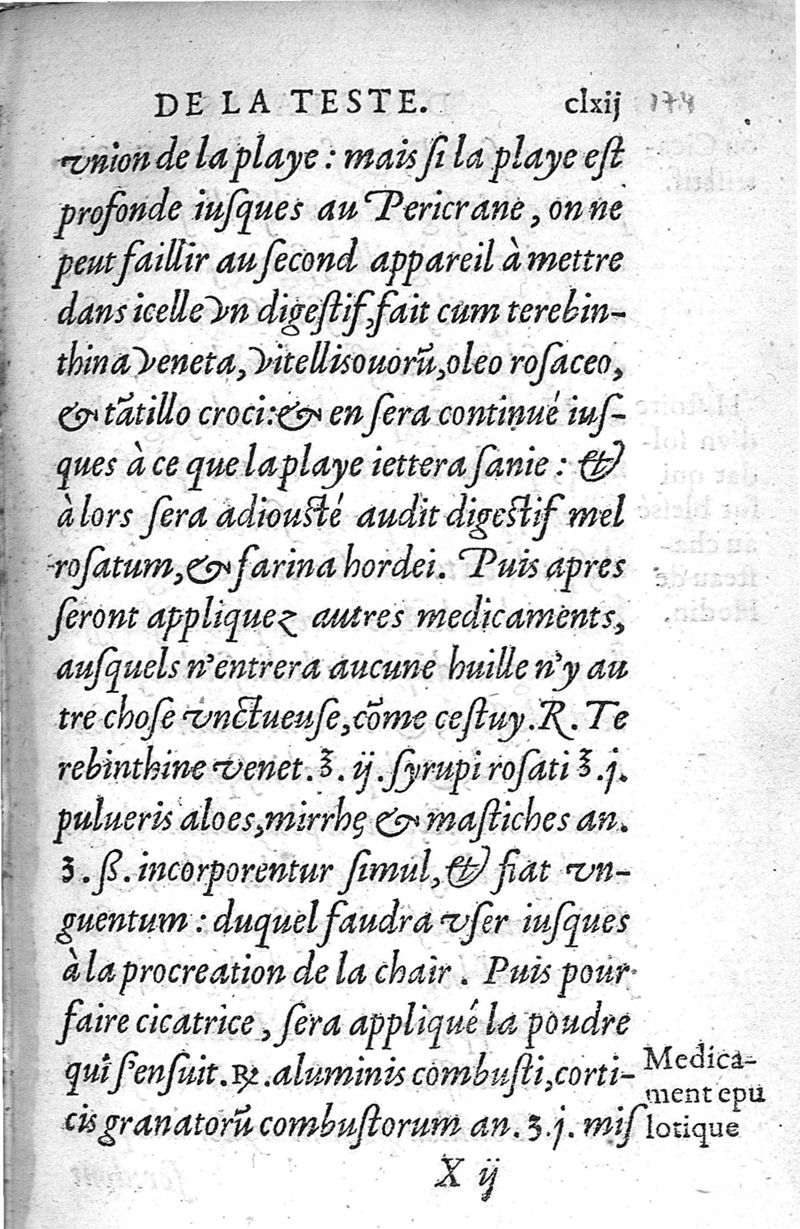 DE LA TESTE. clxij 174
vnion de la playe : mais ſi la playe eſt
profonde iuſques au Pericrane, on ne
peut faillir au ſecond appareil à mettre
dans icelle vn digeſtif, fait cum terebin-
thina Veneta, vitellis ouorũ, oleo roſaceo,
& tãtillo croci: & en ſera continué iuſ-
ques à ce que la playe iettera ſanie : &
à lors ſera adiouſté audit digeſtif mel
roſatum, & farina hordei. Puis apres
ſeront appliquez autres medicaments,
auſquels n'entrera aucune huille n'y au
tre choſe vnctueuſe, cõme ceſtuy. ℞. Te
rebinthine venet. ʒ. ij. ſyrupi roſati ʒ. j.
pulueris aloes, mirrhę & maſtiches an.
ʒ. ß. incorporentur ſimul, & fiat vn-
guentum : duquel faudra vſer iuſques
à la procreation de la chair. Puis pour
faire cicatrice, ſera appliqué la poudre
qui s'enſuit. ℞. aluminis combuſti, corti-
cis granatorũ combuſtorum an. ʒ. j. miſ
Medica-
ment epu
lotique
X ij